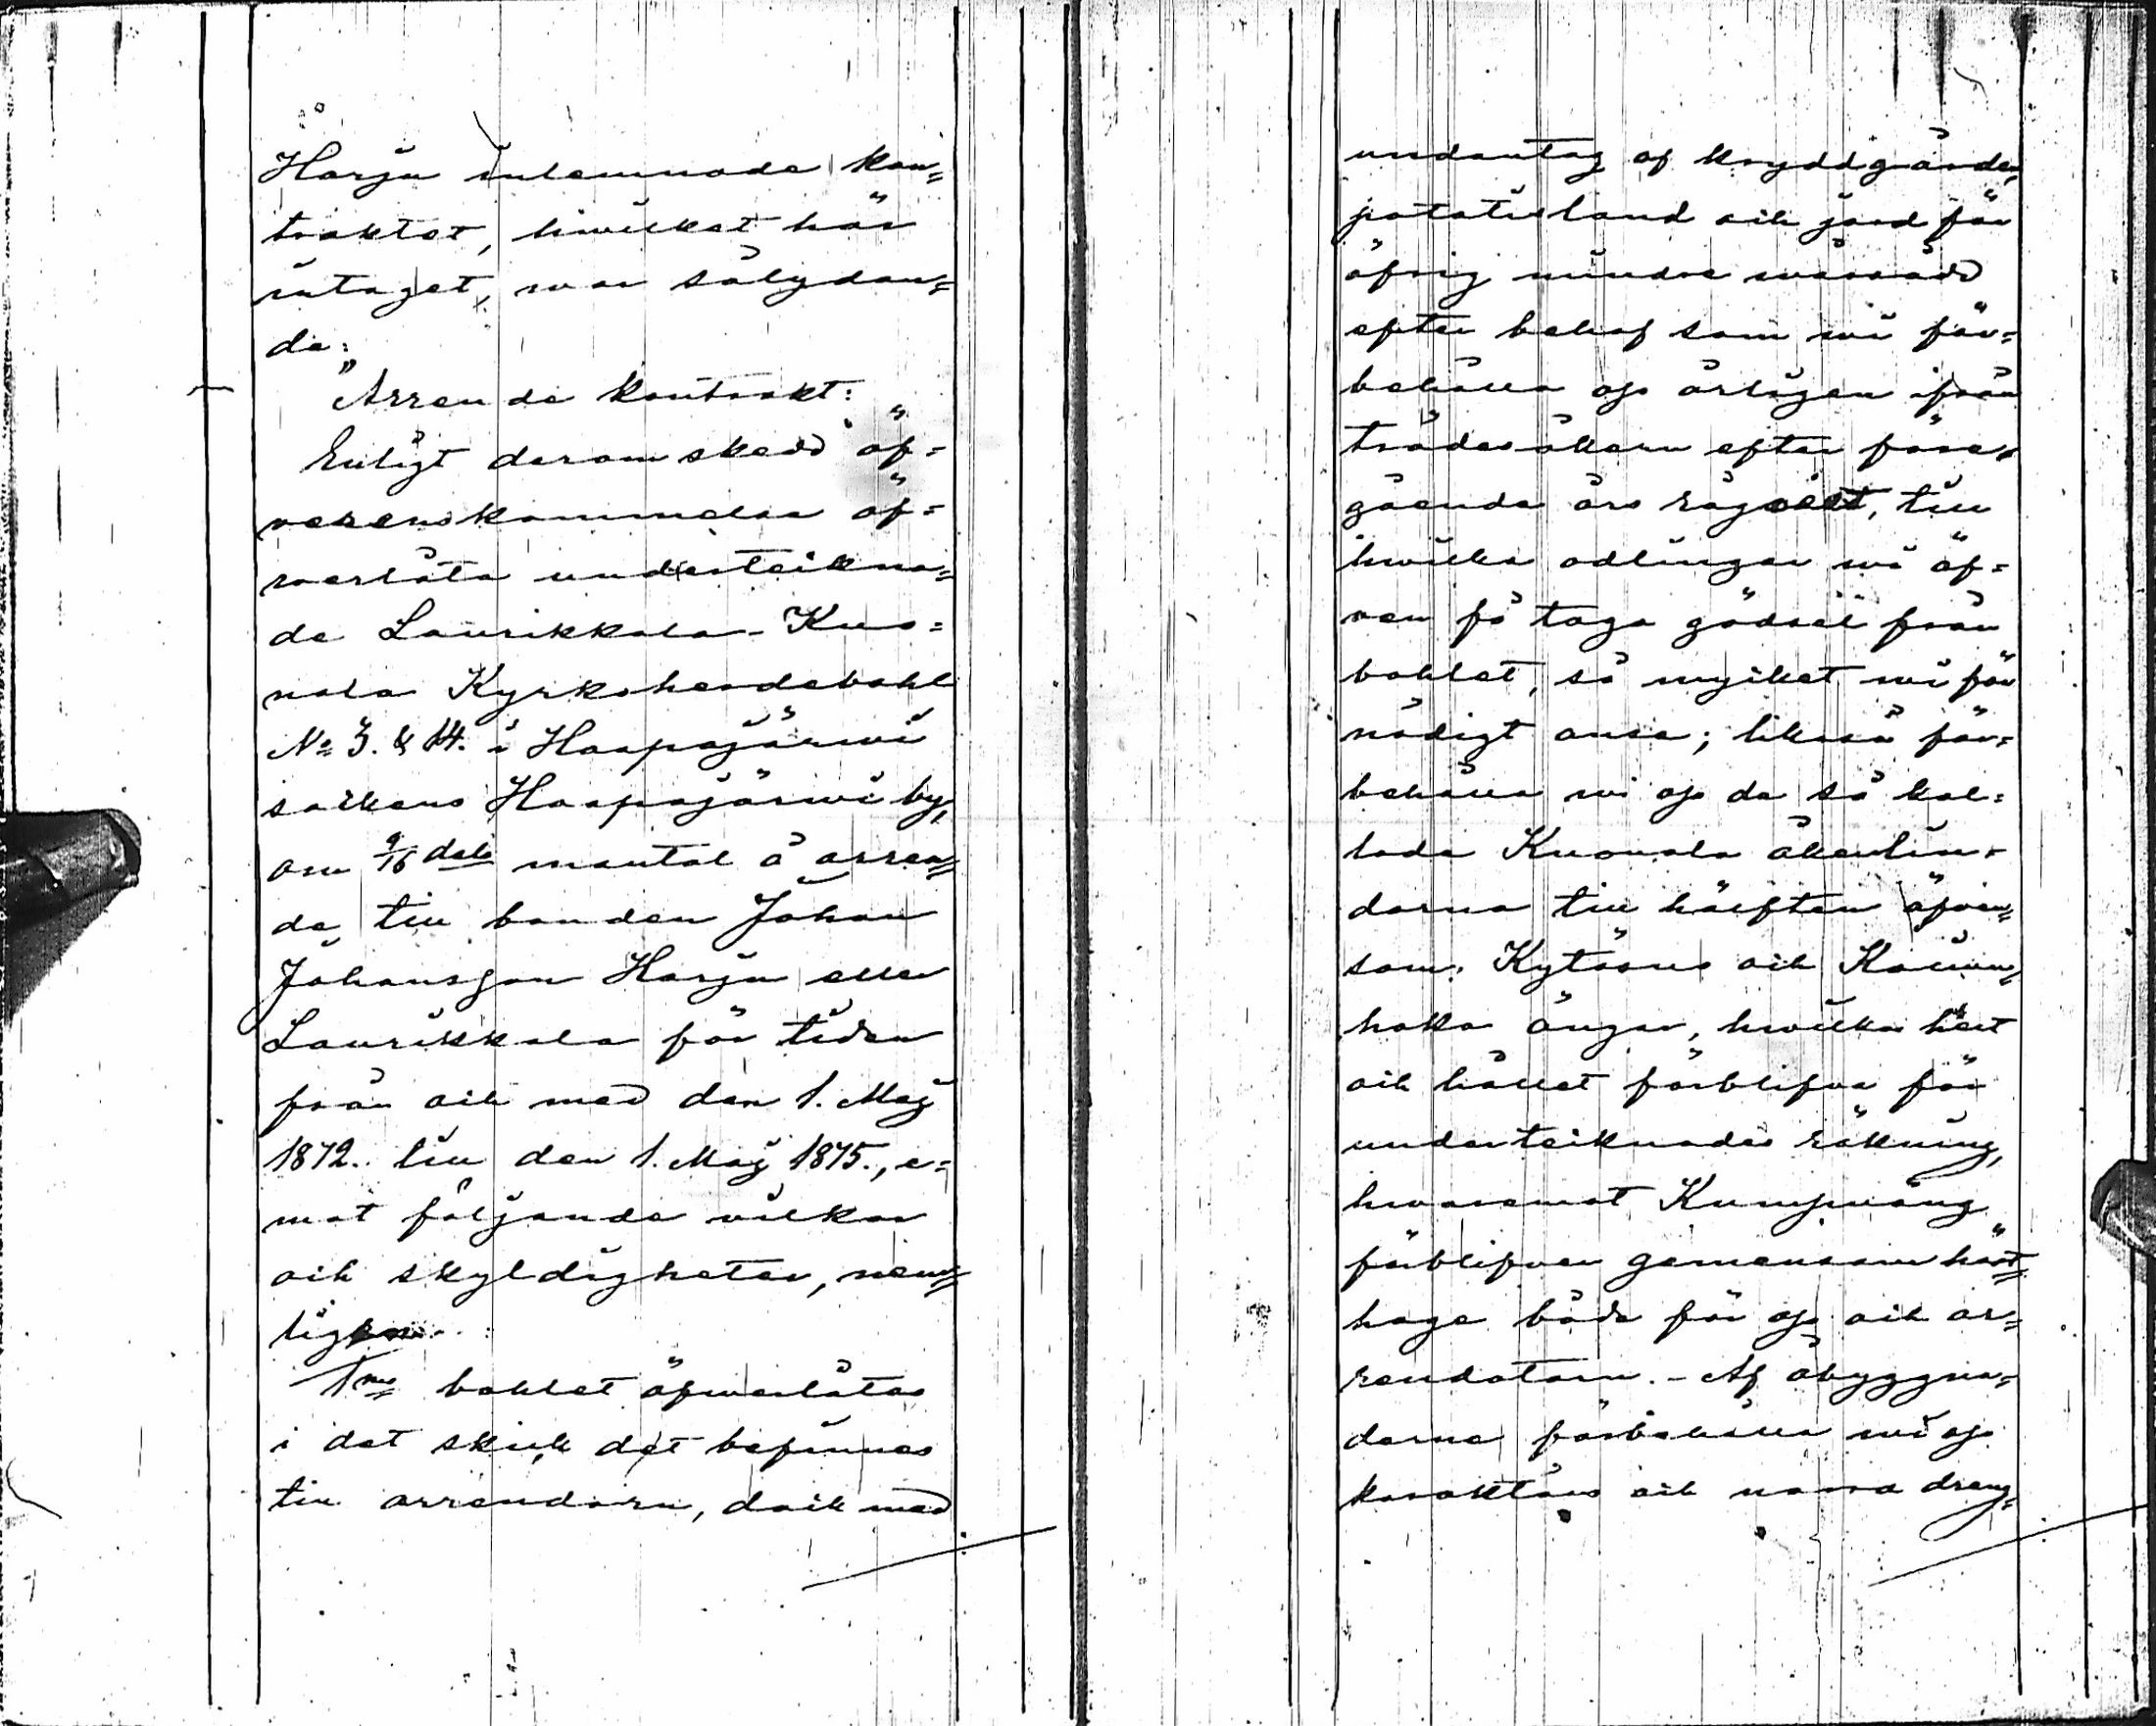 Harju inlemnade kon=
traktet, hwilket här
intaget, war sålydan=
de:
"Arrende kontrakt:
Enligt derom skedd öf=
verenskommelse öf=
werlåta underteikna=
de Laurikkala-Kuo=
nala Kyrkoherdebohl
No 3. & 14. i Haapajärwi
sockens Haapajärwi by,
om 9/16 dels mantal å arren=
de till bonden Johan
Johansson Harju eller
Laurikkala för tiden
från och med den 1. Maj
1872. till den 1. Maj 1875., e=
mot följande vilkor
och skyldigheter, nem=
ligen:
1mo bohlet öfwerlåtes
i det skick det befinnes
till arrendorn, dock med
undantag af kryddgården,
potatisland och jord för
öfrig mindre
efter behof som wi för=
behålla oss årligen ifrån
trädesåkern efter före=
gående års rågsäst, till
hwilka odlingar wi äf=
ven få taga gödsel från
bohlet, så mycket wi för
nödigt anse; likaså för=
behålla wi oss de så kal=
lade Kuonala åkerlin=
dorna till hälften äfven=
som Kytösuo och
haka ängar, hwilka helt
och hållet förblifva för
underteiknades räkning,
hwaremot
förblifver gemensam häst=
hage både för oss och ar=
rendatorn. - Af åbyggna=
derna förbehålla wi oss
karaktärs och norra dreng=